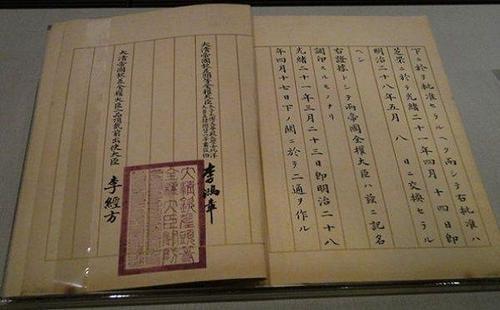 下ニ於テ批准セラルヘク而シテ右批准ハ
芝罘ニ於テ光緒二十一年四月十四日即
明治二十八年五月八日ニ交換セラル
ヘシ
右證據トシテ兩帝國全權大臣ハ茲ニ記名
調印スルモノナリ
光緒二十一年三月二十三日即明治二十八
年四月十七日下ノ關ニ於テ二通ヲ作ル
大清帝國欽差頭等全權大臣 李鴻章
大清帝國欽差全權大臣二品頂戴前出使大臣 李經方
大清欽差頭等
全權大臣關防